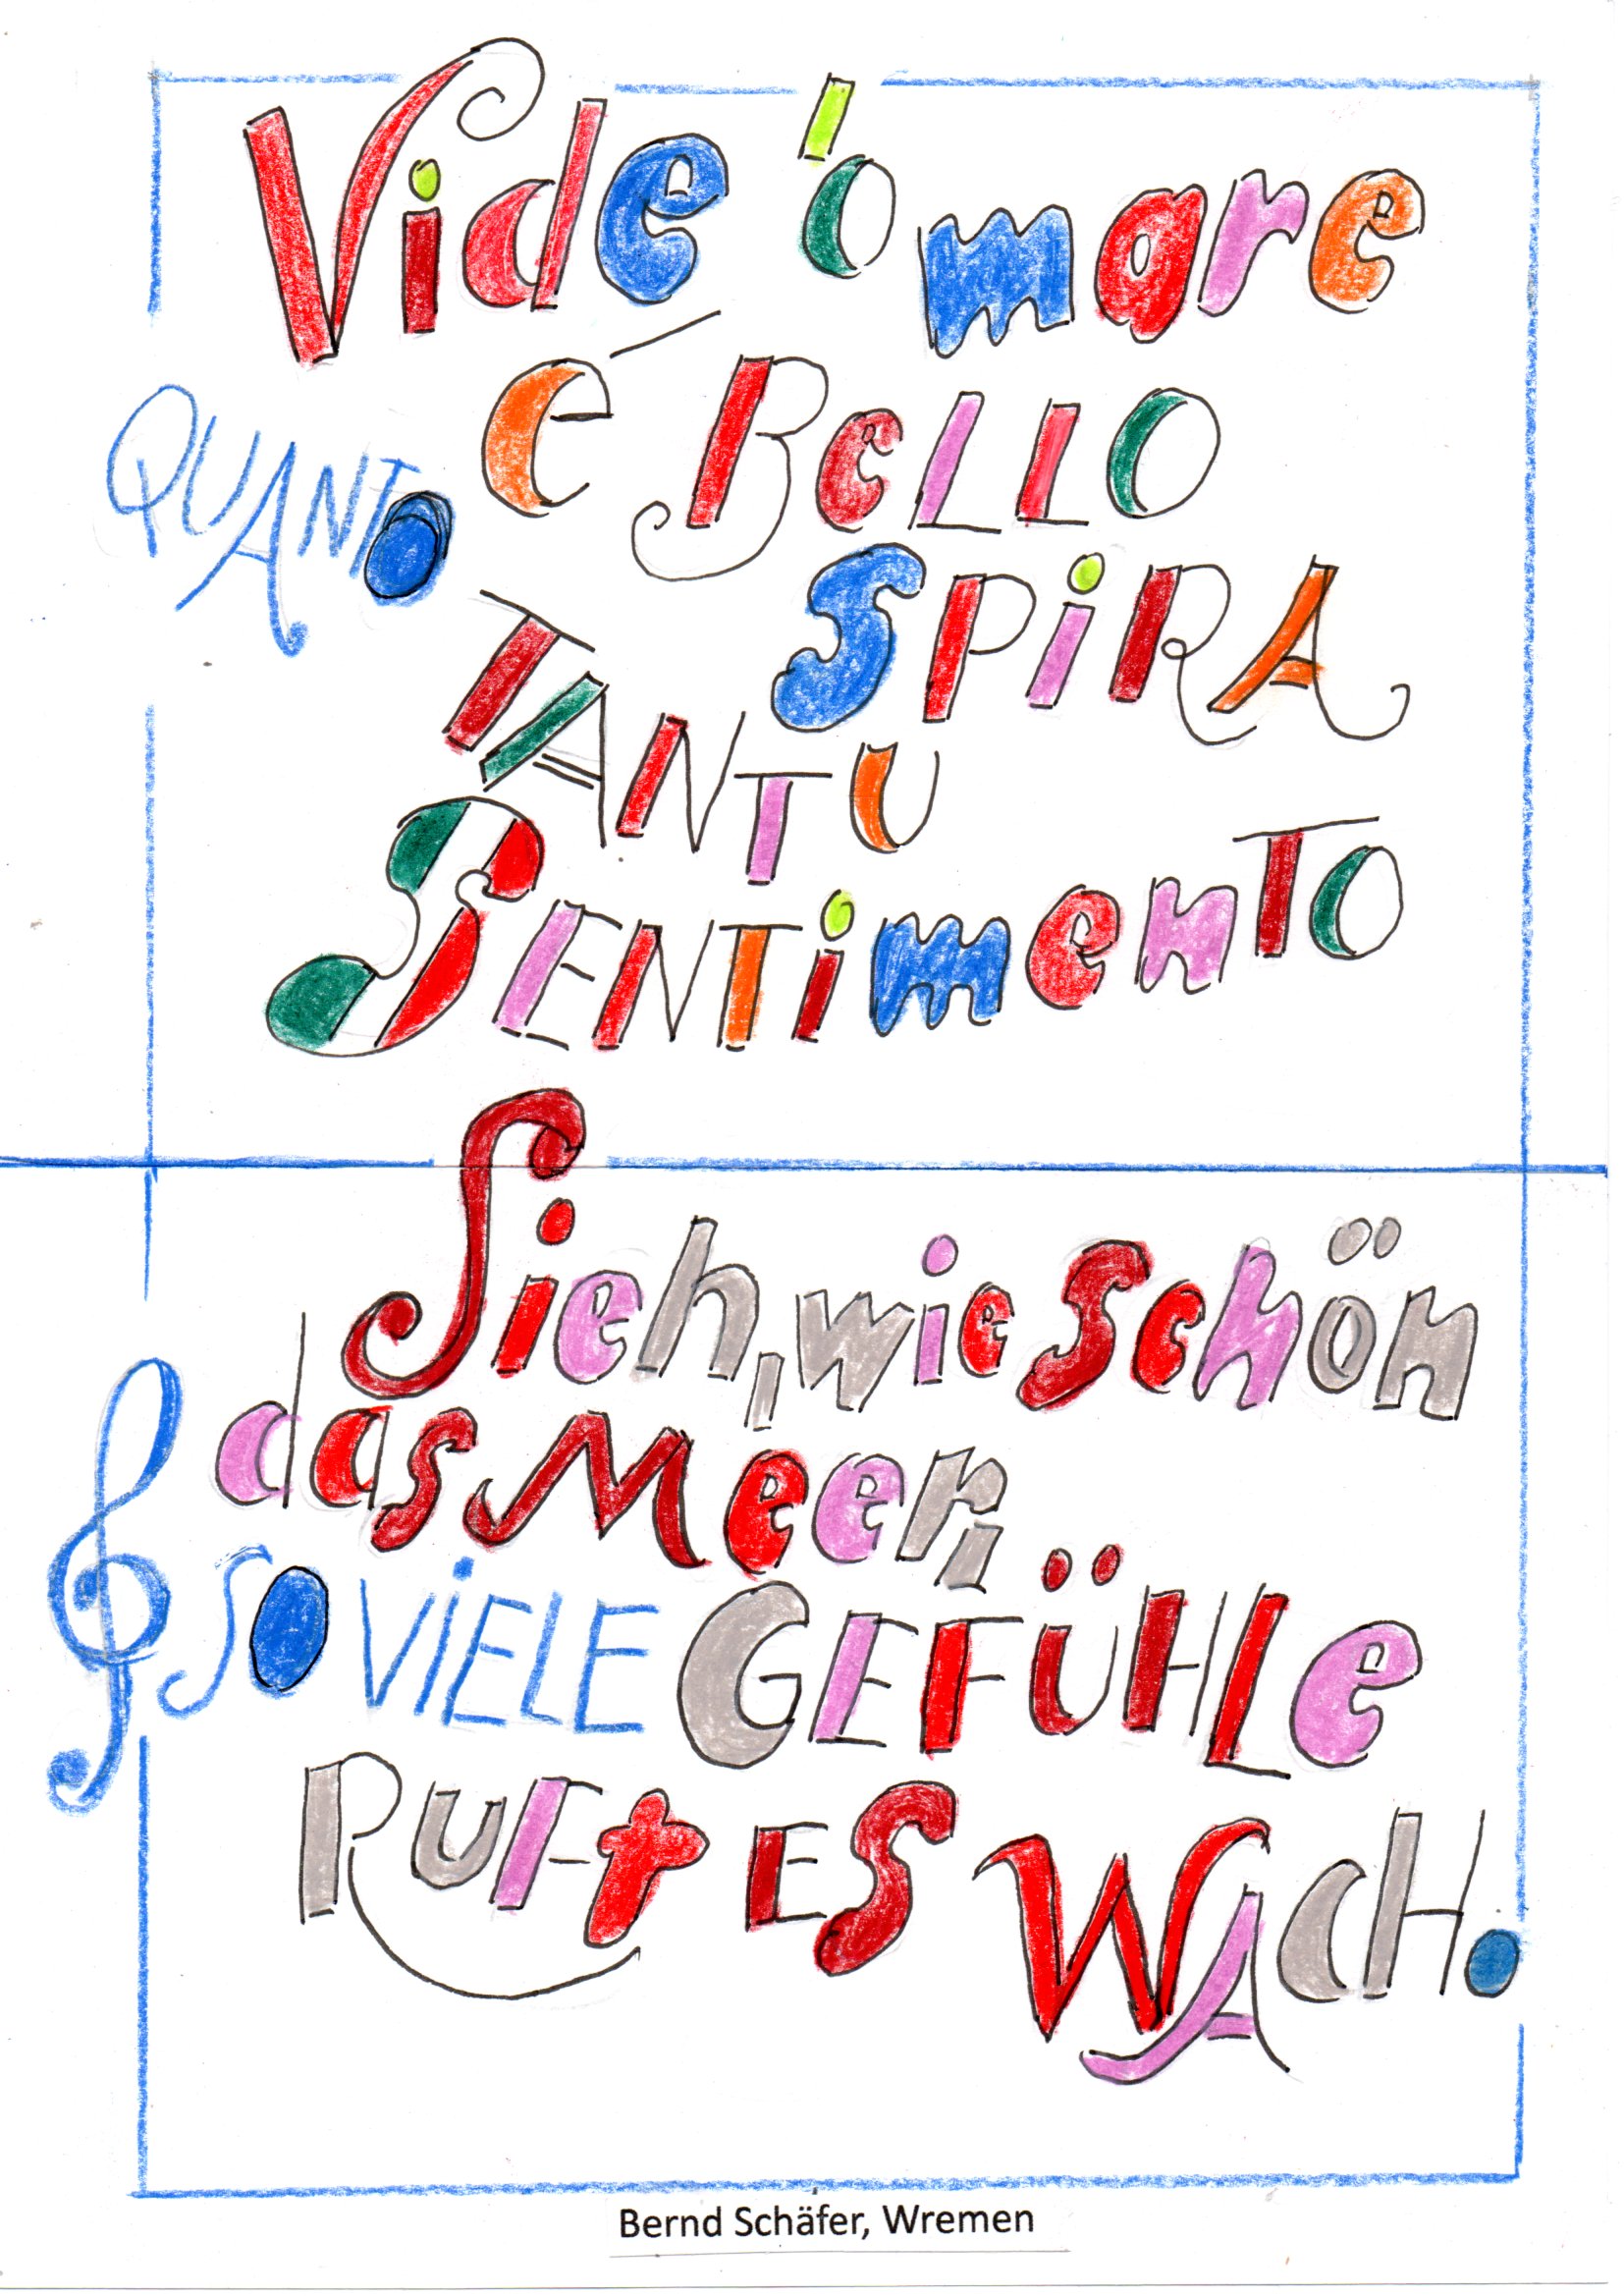 Vide 'o mare
QUANTO é Bello
SPiRA
TANTU
SENTimenTO
Sieh, wie schön
das Meer,
SO ViELE GEFÜHLe
RUFt ES WACH.
Bernd Schäfer, Wremen